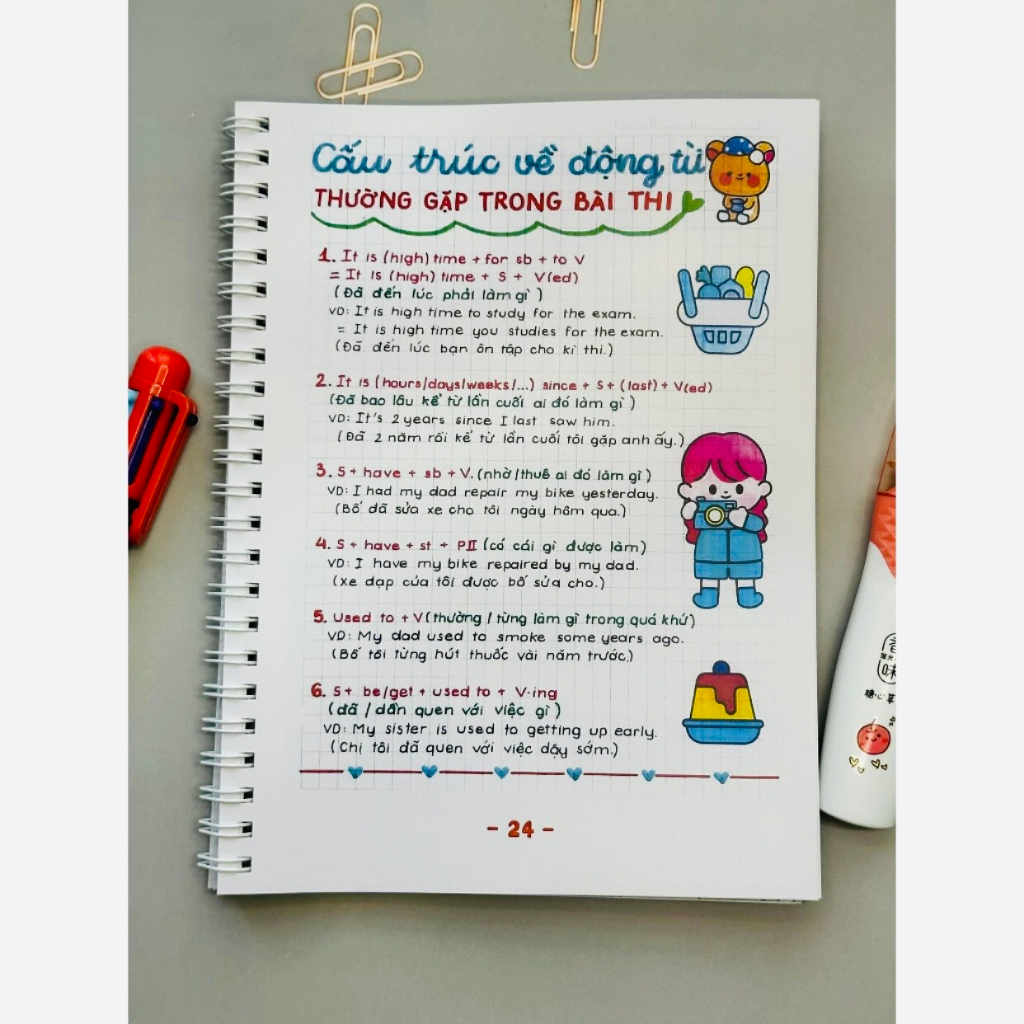 Cấu trúc về động từ
THƯỜNG GẶP TRONG BÀI THI
1. It is (high) time + for sb + to V
= It is (high) time + S + V(ed)
(Đã đến lúc phải làm gì)
VD: It is high time to study for the exam.
= It is high time you studies for the exam.
(Đã đến lúc bạn ôn tập cho kì thi.)
2. It is (hours/days/weeks/...) since + S + (last) + V(ed)
(Đã bao lâu kể từ lần cuối ai đó làm gì)
VD: It's 2 years since I last saw him.
(Đã 2 năm rồi kể từ lần cuối tôi gặp anh ấy.)
3. S + have + sb + V. (nhờ/thuê ai đó làm gì)
VD: I had my dad repair my bike yesterday.
(Bố đã sửa xe cho tôi ngày hôm qua.)
4. S + have + st + PII (có cái gì được làm)
VD: I have my bike repaired by my dad.
(xe đạp của tôi được bố sửa cho.)
5. Used to + V (thường / từng làm gì trong quá khứ)
VD: My dad used to smoke some years ago.
(Bố tôi từng hút thuốc vài năm trước.)
6. S + be/get + used to + V-ing
(đã / dần quen với việc gì)
VD: My sister is used to getting up early.
(Chị tôi đã quen với việc dậy sớm.)
- 24 -
味